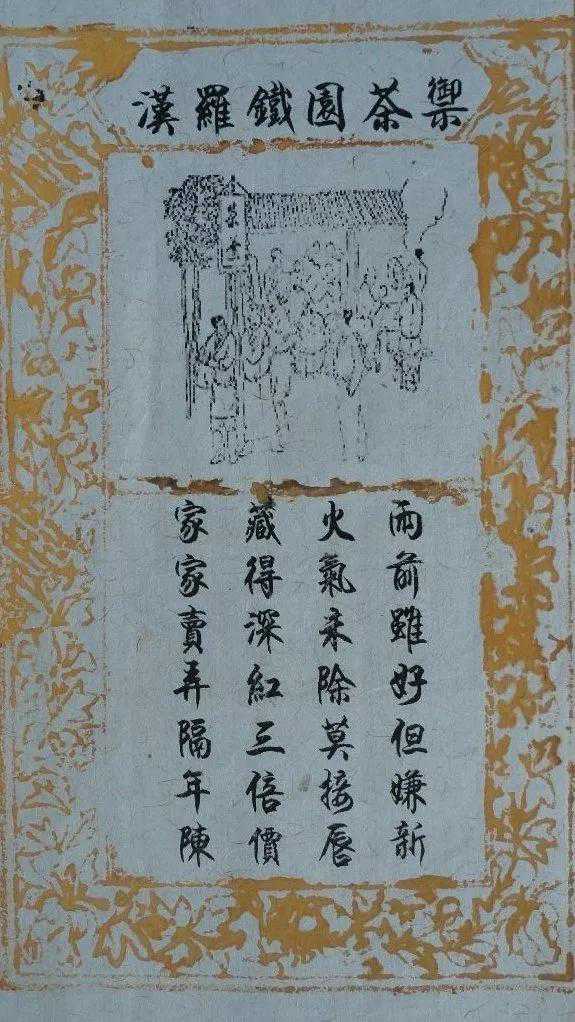 禦茶園鐵羅漢
茶
雨前雖好但嫌新
火氣未除莫接唇
藏得深紅三倍價
家家賣弄隔年陳